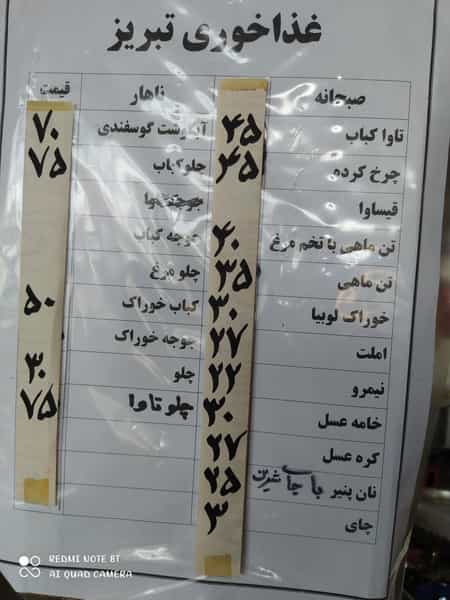 غذاخوری تبریز
صبحانه ناهار قیمت
تاوا کباب ۴۵ آبگوشت گوسفندی ۷۰
چرخ کرده ۴۵ چلوکباب ۷۵
قیساوا
تن ماهی با تخم مرغ ۴۰ جوجه کباب
تن ماهی ۳۵ چلو مرغ
خوراک لوبیا ۳۰ کباب خوراک ۵۰
املت ۲۷ جوجه خوراک
نیمرو ۲۲ چلو ۳۰
خامه عسل ۳۰ چلو تاوا ۷۵
کره عسل ۲۷
نان پنیر با چای شیرین ۲۵
چای ۳
REDMI NOTE 8T
AI QUAD CAMERA